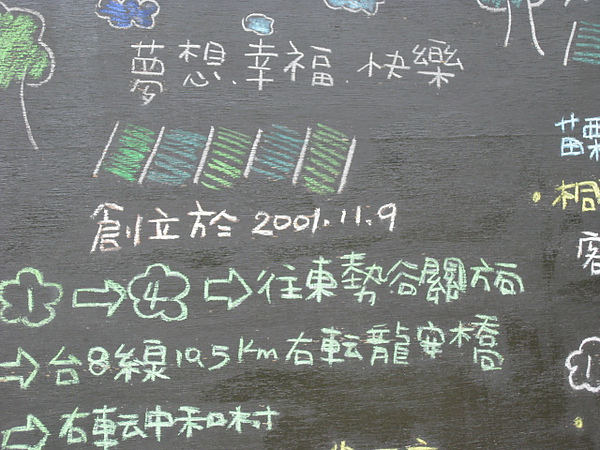 夢想、幸福、快樂
創立於 2001.11.9
1 → 4 → 往東勢谷關方向
→ 台8線 19.5 Km 右転龍安橋
→ 右転中和村
苗栗
桐
客
1